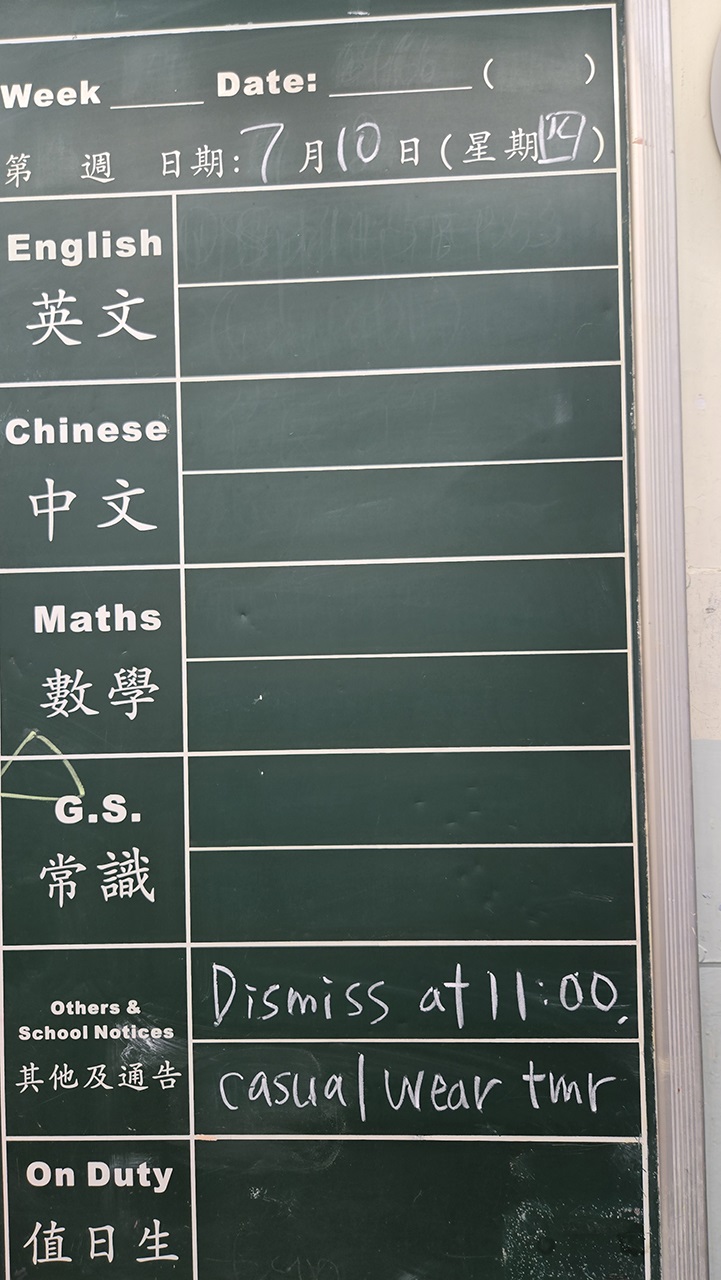 Week ____ Date: ______ ( )
第 週 日期: 7月10日 (星期四)
English
英文
Chinese
中文
Maths
數學
G.S.
常識
Others &
School Notices
其他及通告
Dismiss at 11:00.
casual wear tmr
On Duty
值日生